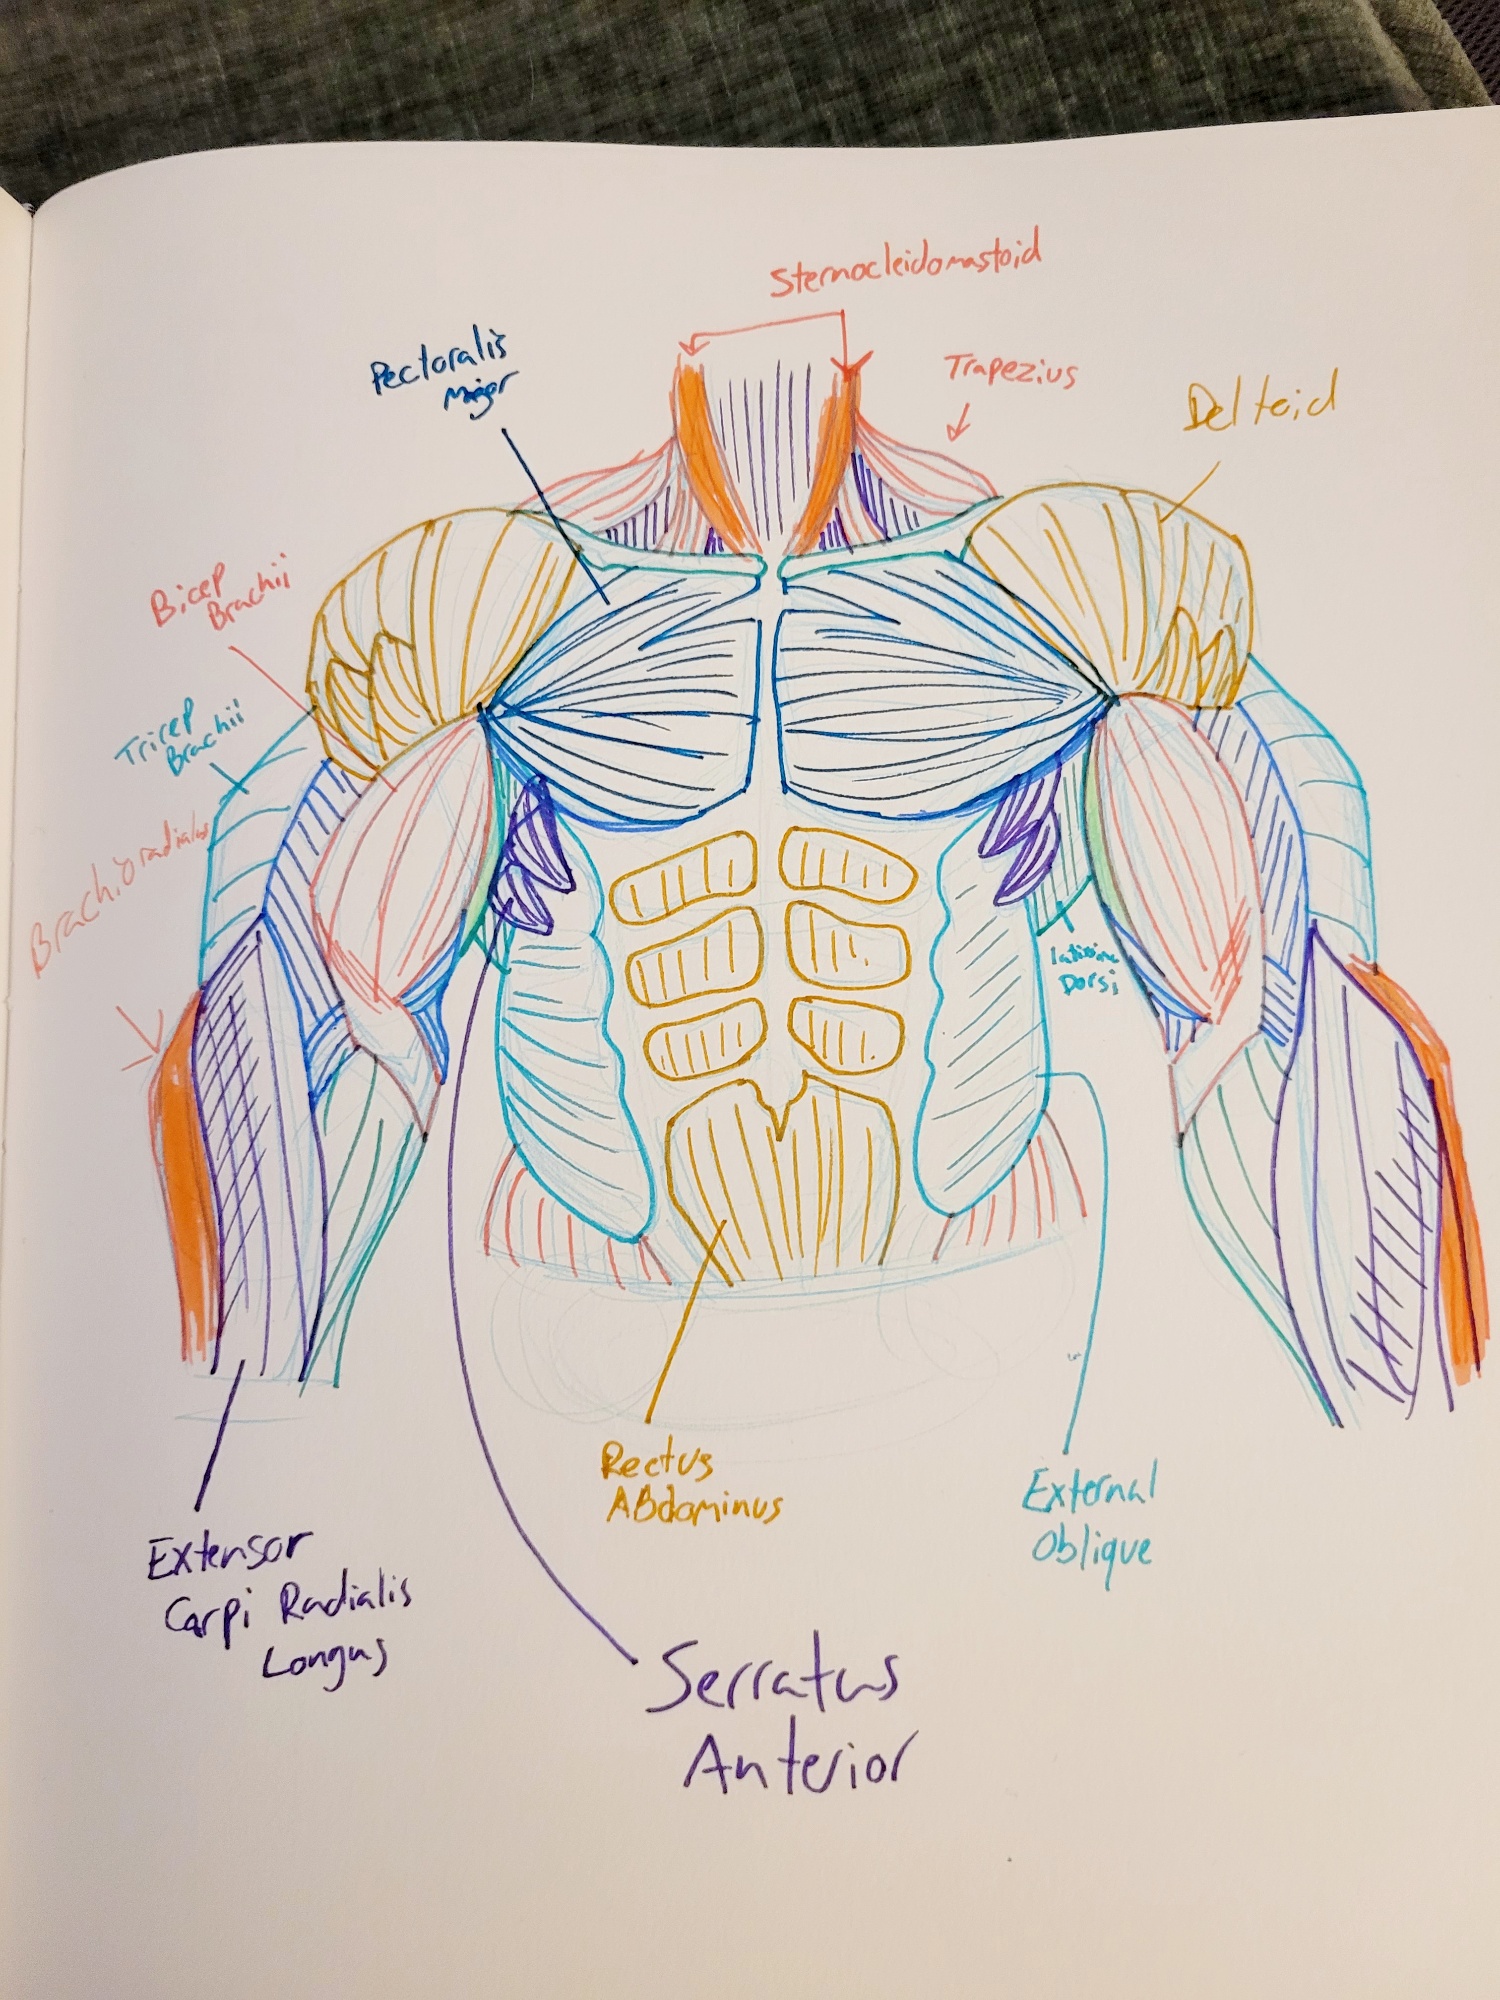 Sternocleidomastoid
Pectoralis
Major
Trapezius
Deltoid
Bicep
Brachii
Tricep
Brachii
Brachioradialus
latissimus
Dorsi
Rectus
Abdominus
External
Oblique
Extensor
Carpi Radialis
Longus
Serratus
Anterior